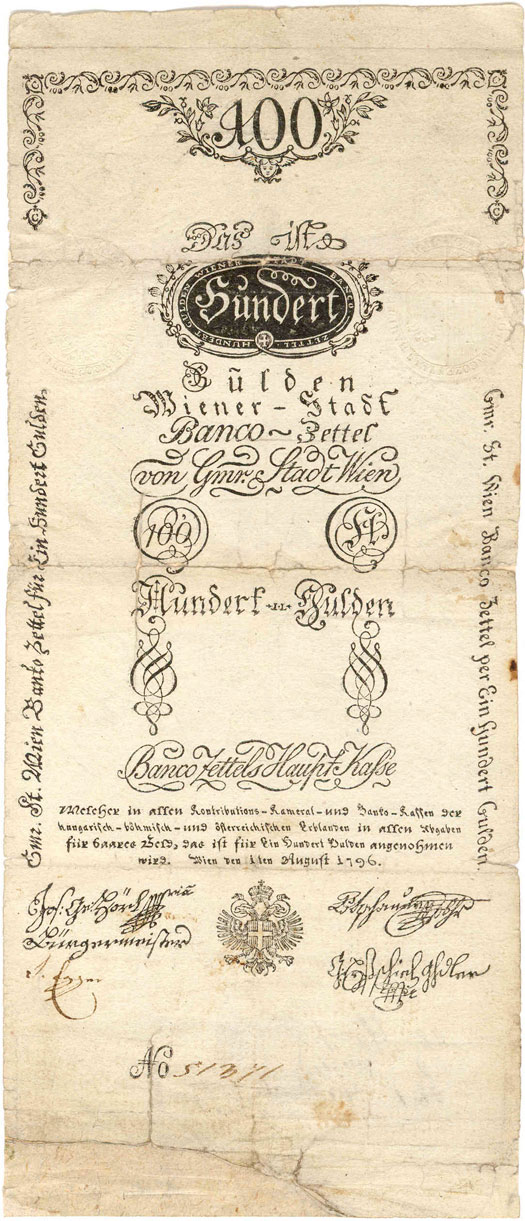 100
Das ist
WIENER STADT BANCO ZETTEL · HUNDERT GULDEN
Hundert
Gülden
Wiener - Stadt
Banco - Zettel
von Gmr. Stadt Wien
100 Fl
Hundert Gulden
Banco Zettels Haupt Kasse
Welcher in allen Kontributions - Kameral - und Banko - Kassen der
hungarisch - böhmisch - und österreichischen Erblanden in allen Abgaben
für baares Geld, das ist für Ein Hundert Gulden angenohmen
wird. Wien den 1ten August 1796.
Gmr. St. Wien Banko Zettel für Ein Hundert Gulden.
Gmr. St. Wien Banco Zettel per Ein Hundert Gulden.
Jos. Ge. Hörl
Bürgermeister
No 51371